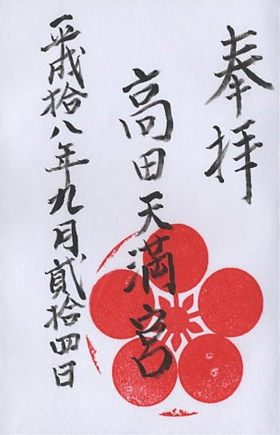 奉拝
高田天満宮
平成拾八年九月貳拾四日